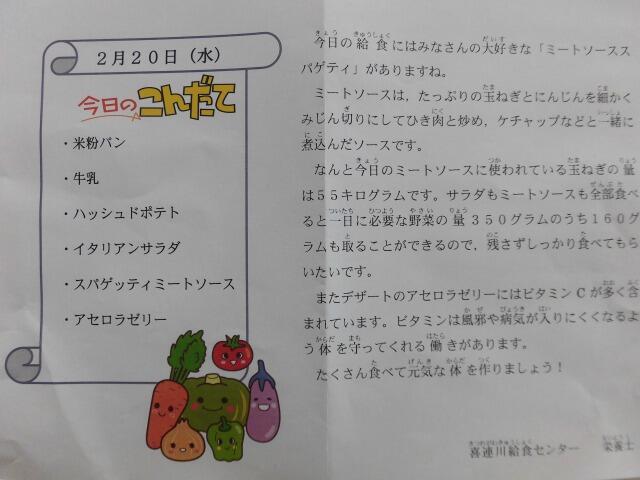 ２月２０日（水）
今日のこんだて
・米粉パン
・牛乳
・ハッシュドポテト
・イタリアンサラダ
・スパゲッティミートソース
・アセロラゼリー
今日の給食にはみなさんの大好きな「ミートソースス
パゲティ」がありますね。
ミートソースは，たっぷりの玉ねぎとにんじんを細かく
みじん切りにしてひき肉と炒め，ケチャップなどと一緒に
煮込んだソースです。
なんと今日のミートソースに使われている玉ねぎの量
は５５キログラムです。サラダもミートソースも全部食べ
ると一日に必要な野菜の量３５０グラムのうち１６０グ
ラムも取ることができるので，残さずしっかり食べてもら
いたいです。
またデザートのアセロラゼリーにはビタミンＣが多く含
まれています。ビタミンは風邪や病気が入りにくくなるよ
う体を守ってくれる働きがあります。
たくさん食べて元気な体を作りましょう！
喜連川給食センター　栄養士